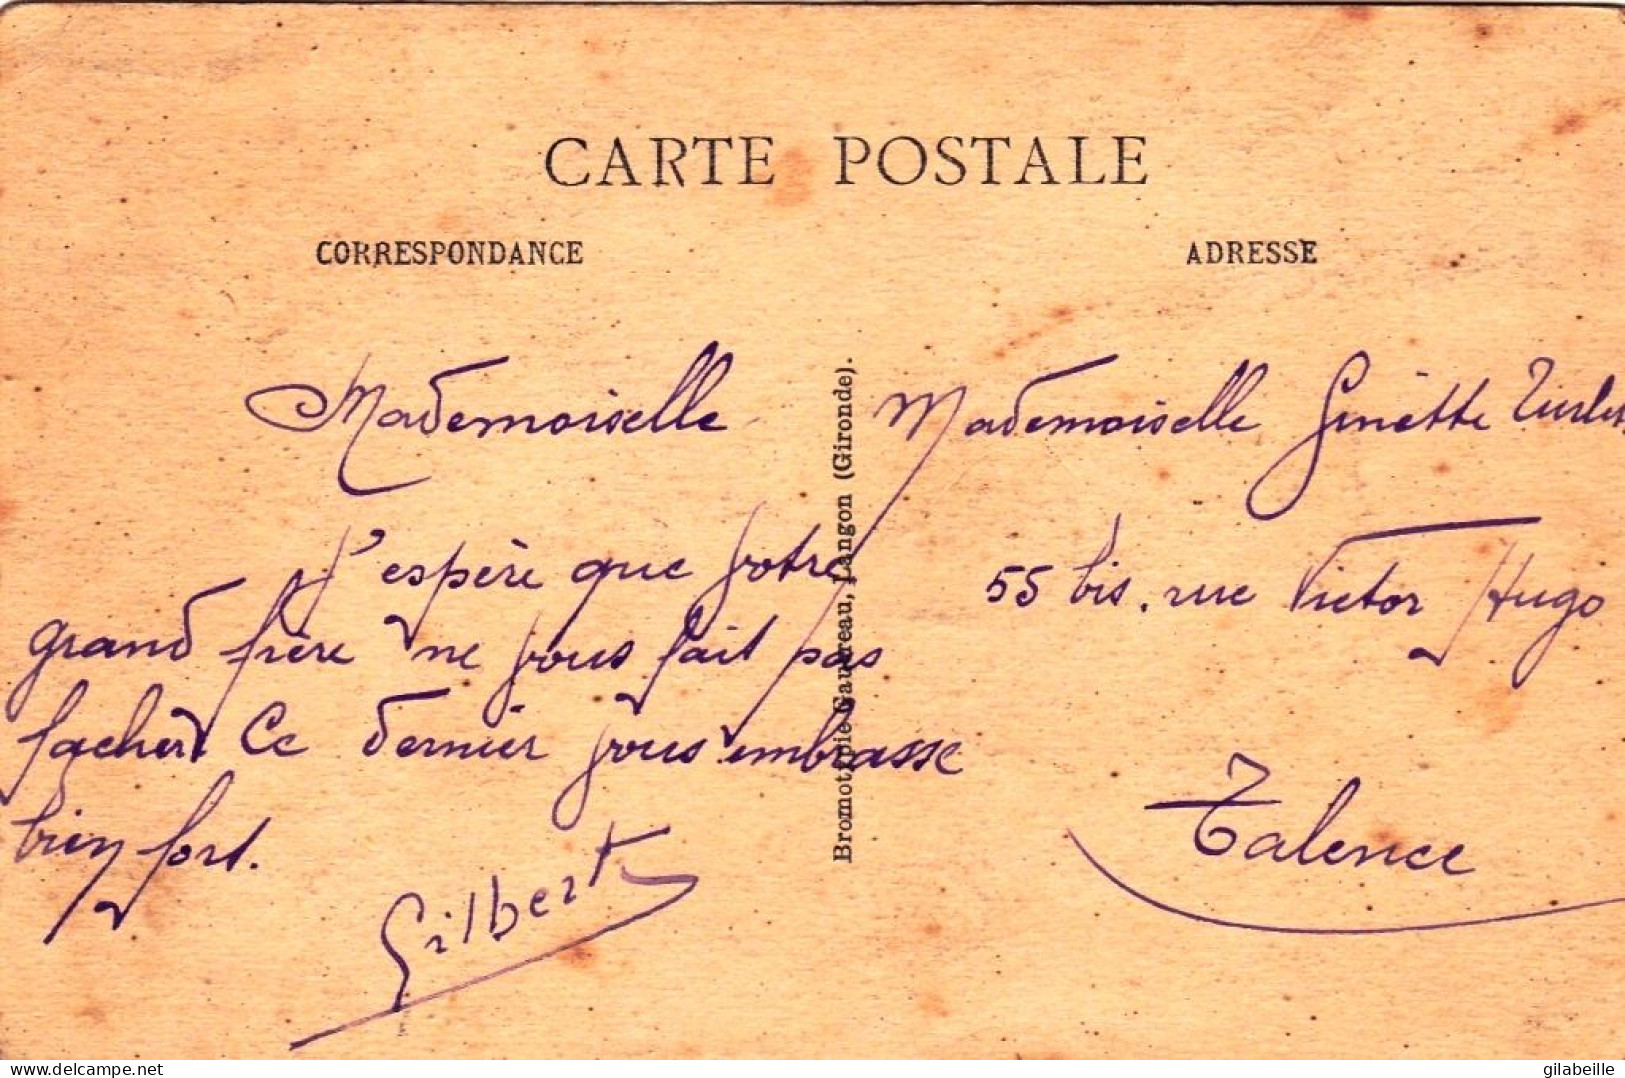 CARTE POSTALE
CORRESPONDANCE
ADRESSE
Mademoiselle
J'espère que votre
grand frère ne vous fait pas
facher. Ce dernier vous embrasse
bien fort.
Gilbert
Bromotypie Gautreau, Langon (Gironde).
Mademoiselle Ginette
55 bis. rue Victor Hugo
Talence
www.delcampe.net
gilabeille